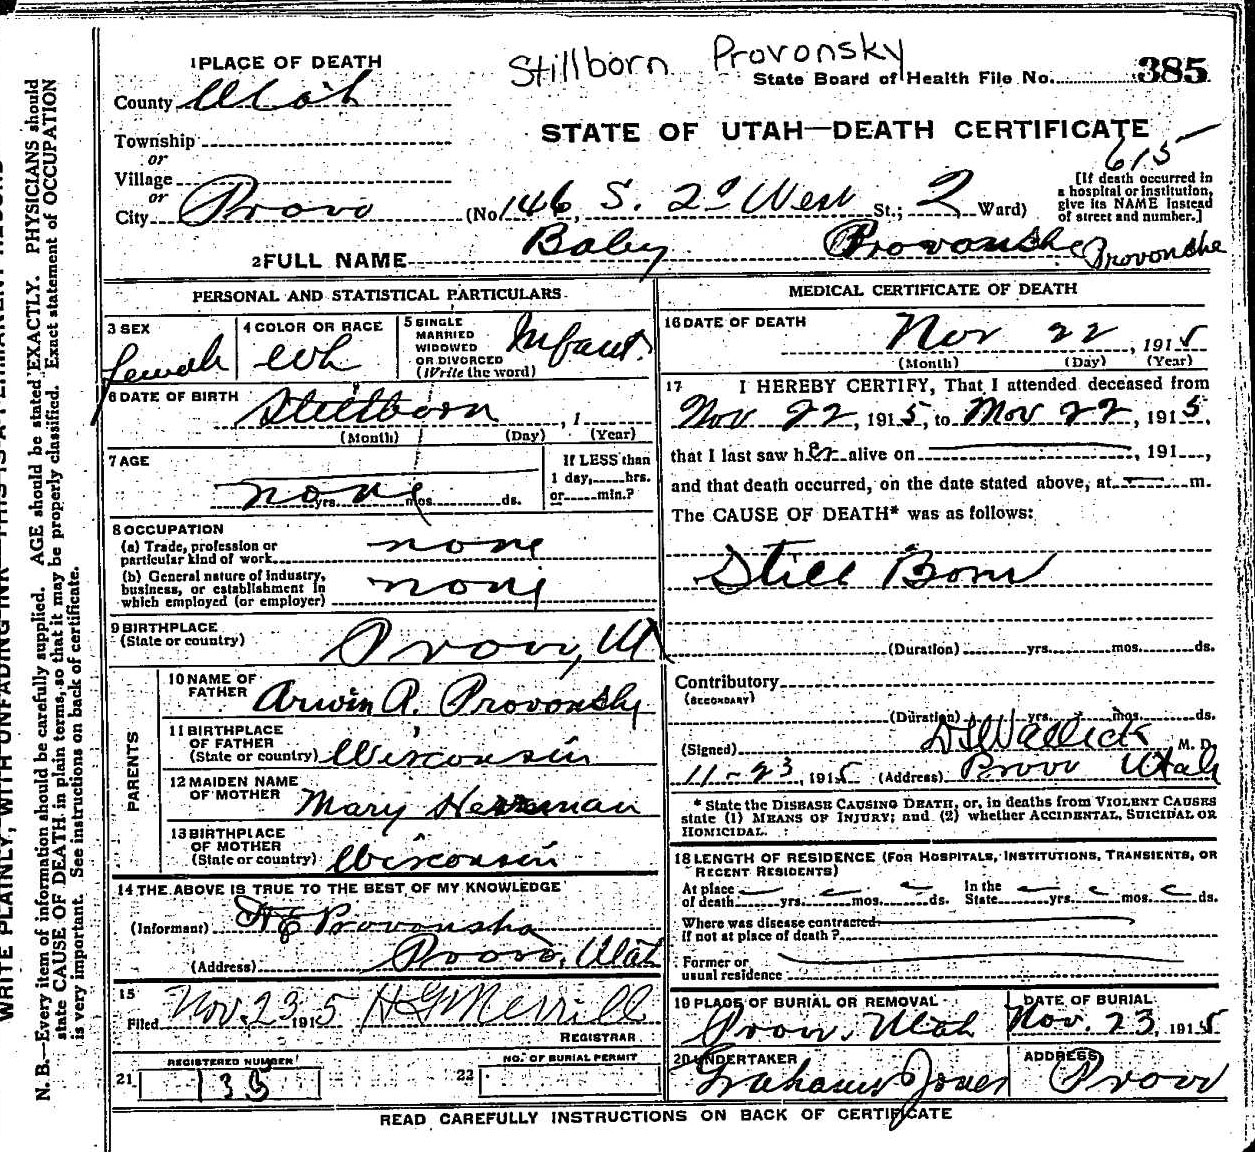 Stillborn Provonsky
1 PLACE OF DEATH
State Board of Health File No. 385
County Utah
STATE OF UTAH—DEATH CERTIFICATE
Township
or
Village
or
City Provo (No. 146, S. 2d West St.; 2 Ward)
615
[If death occurred in
a hospital or institution,
give its NAME instead
of street and number.]
2 FULL NAME Baby Provonsha Provonsha
PERSONAL AND STATISTICAL PARTICULARS
3 SEX female
4 COLOR OR RACE Wh
5 SINGLE
MARRIED
WIDOWED
OR DIVORCED
(Write the word) Infant.
6 DATE OF BIRTH Stillborn, 1
(Month) (Day) (Year)
7 AGE none yrs. mos. ds.
If LESS than
1 day, hrs.
or min.?
8 OCCUPATION
(a) Trade, profession or
particular kind of work none
(b) General nature of industry,
business, or establishment in
which employed (or employer) none
9 BIRTHPLACE
(State or country) Provo, Ut
PARENTS
10 NAME OF
FATHER Arwin A. Provonshy
11 BIRTHPLACE
OF FATHER
(State or country) Wisconsin
12 MAIDEN NAME
OF MOTHER Mary Herreman
13 BIRTHPLACE
OF MOTHER
(State or country) Wisconsin
14 THE ABOVE IS TRUE TO THE BEST OF MY KNOWLEDGE
(Informant) Provonsha
(Address) Provo, Utah
15
Filed Nov. 23 1915 H G Merrill
REGISTRAR
REGISTERED NUMBER
21 135
NO. OF BURIAL PERMIT
22
MEDICAL CERTIFICATE OF DEATH
16 DATE OF DEATH
Nov 22, 1915
(Month) (Day) (Year)
17 I HEREBY CERTIFY, That I attended deceased from
Nov 22, 1915, to Nov 22, 1915,
that I last saw her alive on , 191 ,
and that death occurred, on the date stated above, at m.
The CAUSE OF DEATH* was as follows:
Still Born
(Duration) yrs. mos. ds.
Contributory
(SECONDARY)
(Duration) yrs. mos. ds.
(Signed) Wallick M. D.
11-23, 1915 (Address) Provo Utah
* State the DISEASE CAUSING DEATH, or, in deaths from VIOLENT CAUSES
state (1) MEANS OF INJURY; and (2) whether ACCIDENTAL, SUICIDAL OR
HOMICIDAL.
18 LENGTH OF RESIDENCE (FOR HOSPITALS, INSTITUTIONS, TRANSIENTS, OR
RECENT RESIDENTS)
At place
of death yrs. mos. ds.
In the
State yrs. mos. ds.
Where was disease contracted
if not at place of death?
Former or
usual residence
19 PLACE OF BURIAL OR REMOVAL
Provo, Utah
DATE OF BURIAL
Nov. 23, 1915
20 UNDERTAKER
Grahams Jones
ADDRESS
Provo
READ CAREFULLY INSTRUCTIONS ON BACK OF CERTIFICATE
N. B.—Every item of information should be carefully supplied. AGE should be stated EXACTLY. PHYSICIANS should
state CAUSE OF DEATH in plain terms, so that it may be properly classified. Exact statement of OCCUPATION
is very important. See instructions on back of certificate.
WRITE PLAINLY, WITH UNFADING INK—THIS IS A PERMANENT RECORD